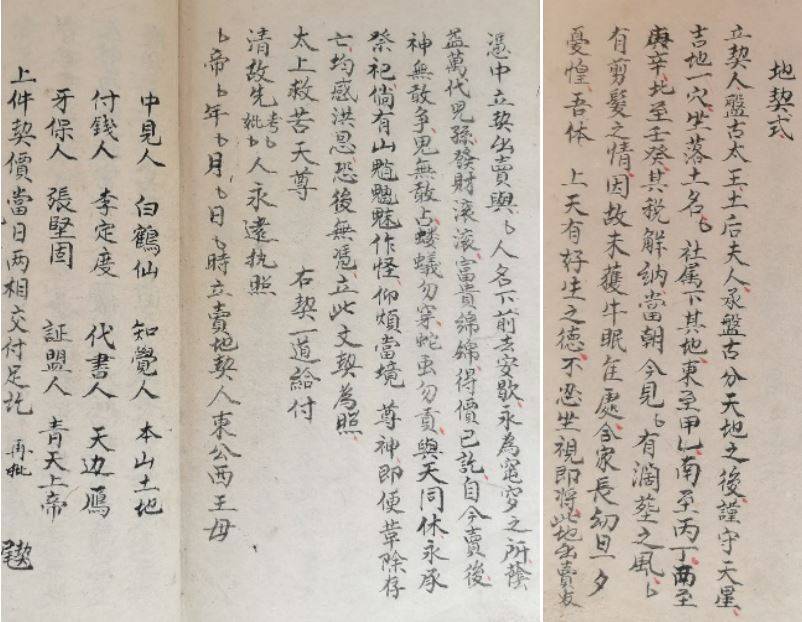 地契式
立契人盤古太王土后夫人承盤古分天地之後謹守天星
吉地一穴坐落土名〻社属下其地東至甲乙南至丙丁西至
庚辛北至壬癸其税解納當朝今見〻有濶塟之風〻
有剪髮之情因故未獲牛眠隹處合家長幼旦夕
憂惶吾体　上天有好生之德不忍坐視即将此地出賣友
憑中立契出賣與〻人名下前去安歇永為窀穸之所蔭
益萬代児孫發財滚滚富貴綿綿得價已訖自今賣後
神無敢争鬼無敢占蝼蟻勿穿蛇虫勿贡與天同休永承
祭祀倘有山魈魍魅作怪仰煩當境　尊神即便革除存
亡均感洪恩恐後無憑立此文契為照
太上救苦天尊　　右契一道給付
清故先考〻妣〻人永遠执照
〻帝〻年〻月〻日〻時立賣地契人東公西王母
中見人　白鶴仙　知覺人　本山土地
付錢人　李定度　代書人　天边鴈
牙保人　張堅固　証盟人　青天上帝
上件契價當日两相交付足訖　再批